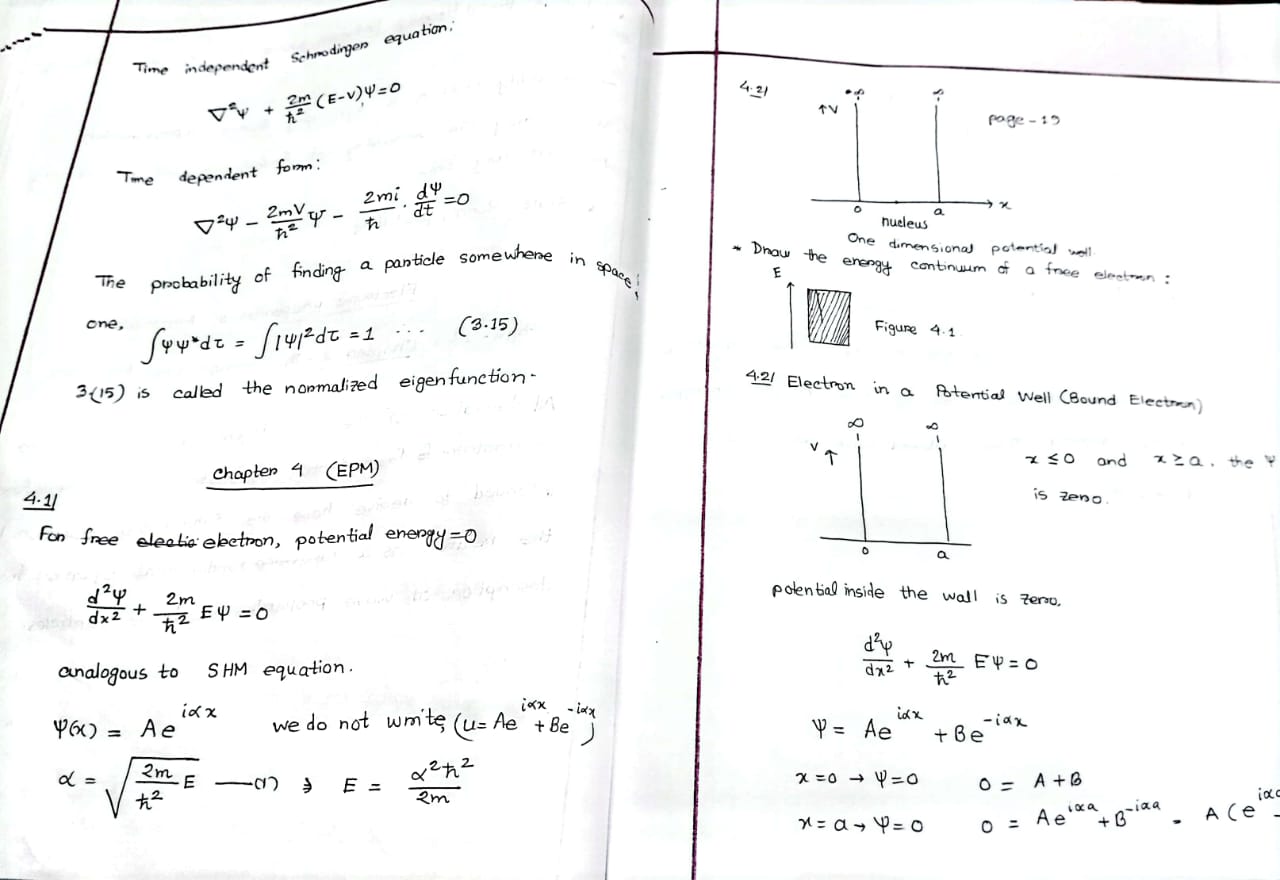 Time independent Schrodinger equation:
∇²ψ + 2m/ħ² (E-V)ψ=0
Time dependent form:
∇²ψ - 2mV/ħ² ψ - 2mi/ħ . dψ/dt =0
The probability of finding a particle somewhere in space;
one,
∫ψψ*dτ = ∫|ψ|²dτ =1 ... (3.15)
3(15) is called the normalized eigenfunction-
Chapter 4 (EPM)
4.1/
For free electron, potential energy=0
d²ψ/dx² + 2m/ħ² Eψ =0
analogous to SHM equation.
ψ(x) = Ae^{iαx} we do not write, (u= Ae^{iαx} + Be^{-iαx})
α = √(2m/ħ² E) —(1) ; E = α²ħ²/2m
4.2/
∞ ∞
↑V
page-19
0 a x
nucleus
One dimensional potential well.
* Draw the energy continuum of a free electron :
E
Figure 4.1
4.2/ Electron in a Potential Well (Bound Electron)
∞ ∞
V ↑
x ≤0 and x ≥a, the ψ
is zero.
0 a
potential inside the wall is zero.
d²ψ/dx² + 2m/ħ² Eψ =0
ψ = Ae^{iαx} + Be^{-iαx}
x =0 → ψ=0 0 = A +B
x= a → ψ=0 0 = Ae^{iαa} + B^{-iαa} = A(e^{iαa} -